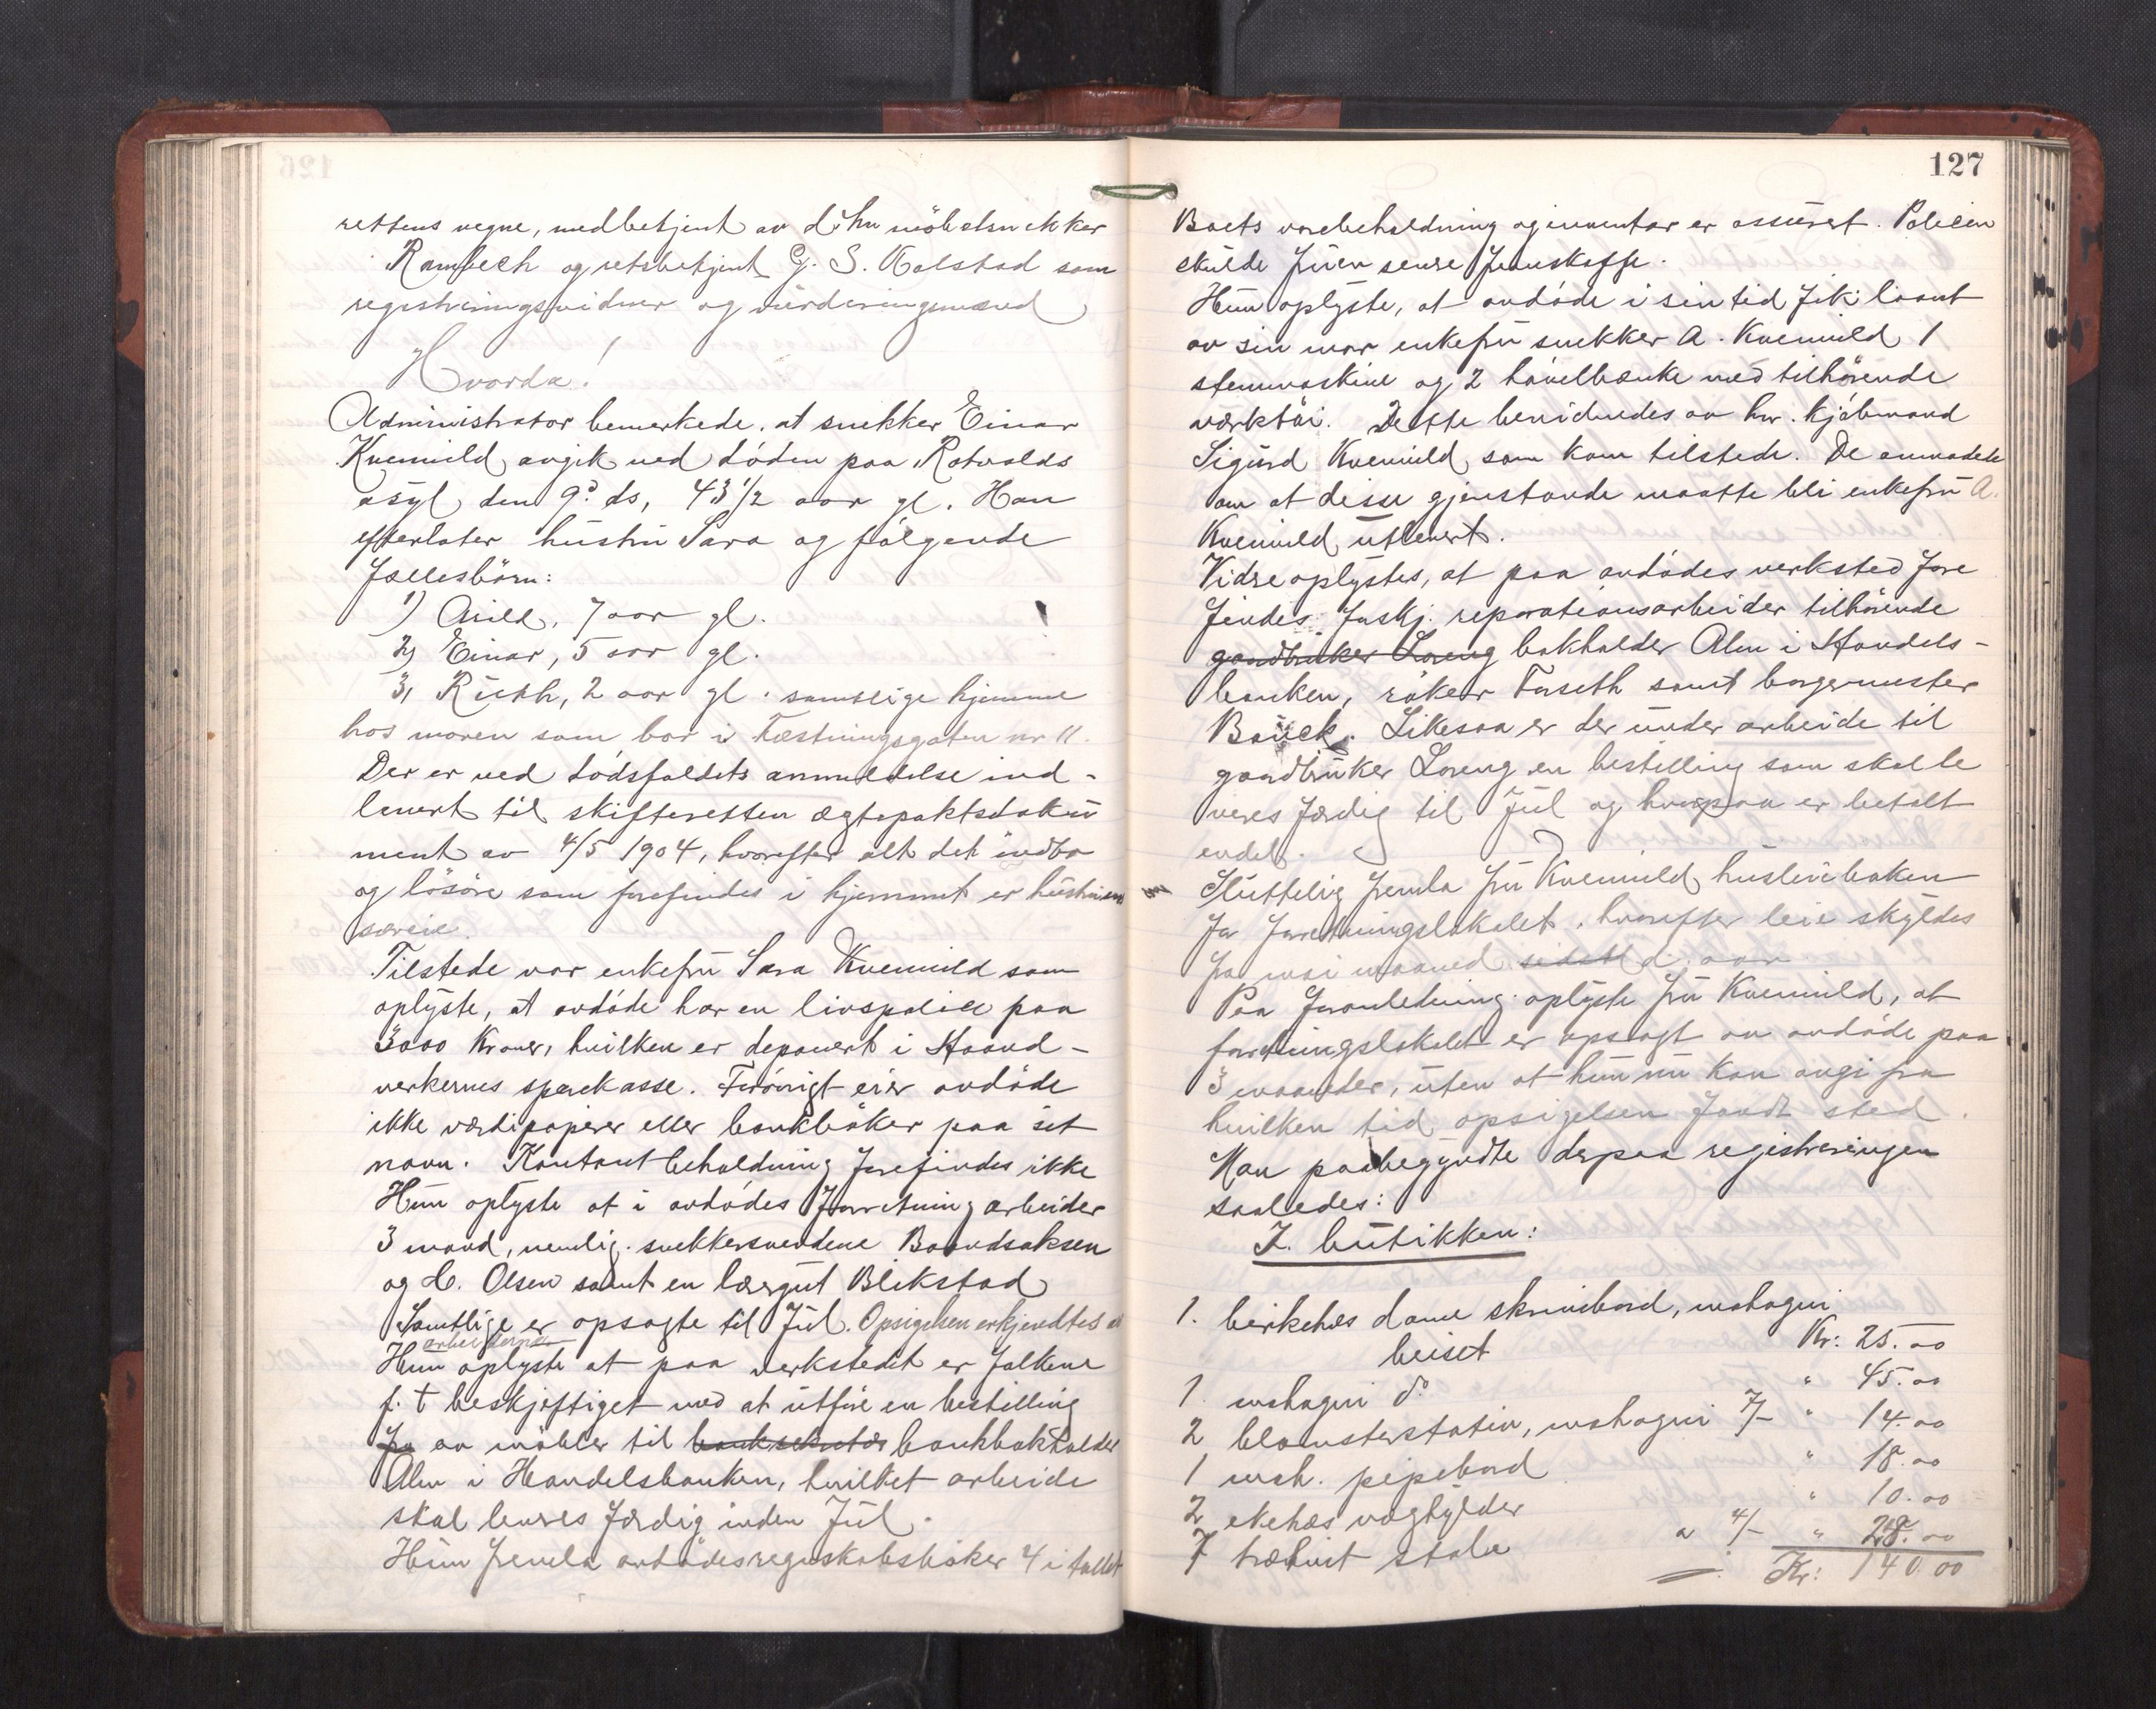 rettens vegne, medbetjent av d'hrr möbelsnekker
Rambech og retsbetjent G. S. Kolstad som
registreringsvidner og vurderingsmænd
Hvorda!
Administrator bemerkede, at snekker Einar
Kvenild avgik ved döden paa Rotvolds
asyl den 9de ds, 43 1/2 aar gl. Han
efterlater hustru Sara og fölgende
fællesbörn:
1) Arild, 7 aar gl.
2) Einar, 5 aar gl.
3) Ruth, 2 aar gl. samtlige hjemme
hos moren som bor i Fæstningsgaten nr 11.
Der er ved dödsfaldets anmeldelse ind-
levert til skifteretten ægtepaktsdoku
ment av 4/5 1904, hvorefter alt det indbo
og lösöre som forefindes i hjemmet er hustruens
særeie.
Tilstede var enkefru Sara Kvenild som
oplyste, at avdöde har en livspolice paa
3000 Kroner, hvilken er deponert i Haand-
verkernes sparekasse. Forövrigt eier avdöde
ikke værdipapirer eller bankböker paa sit
navn. Kontantbeholdning forefindes ikke
Hun oplyste at i avdödes forretning arbeider
3 mand, nemlig snekkersvendene Baardsaksen
og H. Olsen samt en læregut Blikstad
Samtlige er opsagte til Jul. Opsigelsen erkjendtes av
arbeiderne
Hun oplyste at paa verkstedet er folkene
f. t beskjeftiget med at utföre en bestilling
fra av möbler til banksekretær bankbokholder
Alm i Handelsbanken, hvilket arbeide
skal leveres færdig inden Jul.
Hun fremla avdödes regnskabsböker 4 i tallet
127
Boets varebeholdning og inventar er assurert. Policen
skulde fruen senere fremskaffe.
Hun oplyste, at avdöde i sin tid fik laant
av sin mor enkefru snekker A. Kvenild 1
stemmaskine og 2 hövelbænke med tilhörende
værktöi. Dette bevidnedes av hr. kjöbmand
Sigurd Kvenild, som kom tilstede. De anmodede
om at disse gjenstande maatte bli enkefru A.
Kvenild utlevert.
Vidre oplystes, at paa avdödes verksted fore
findes forskj. reparationsarbeider tilhörende
gaardbruker Loreng bokholder Alm i Handels-
banken, röker Forseth samt borgermester
Bauck. Likesaa er der under arbeide til
gaardbruker Loreng en bestilling som skal le
veres færdig til Jul og hvorpaa er betalt
endel.
Sluttelig fremla fru Kvenild husleieboken
for forretningslokalet, hvorefter leie skyldes
fra mai maaned sidstl d. aar
Paa foranledning oplyste fru Kvenild, at
forretningslokalet er opsagt av avdöde paa
3 maaneder, uten at hun nu kan angi fra
hvilken tid opsigelsen fandt sted.
Man paabegyndte derpaa registreringen
saaledes:
I. butikken:
1. birketræs dame skrivebord, mahogni
beiset Kr: 25.00
1. mahogni do " 45.00
2 blomsterstativ, mahogni 7/- " 14.00
1 mah. pipebord " 18.00
2 eketræs væghylder " 10.00
7 træhvit stole a 4/- " 28.00
Kr: 140.00